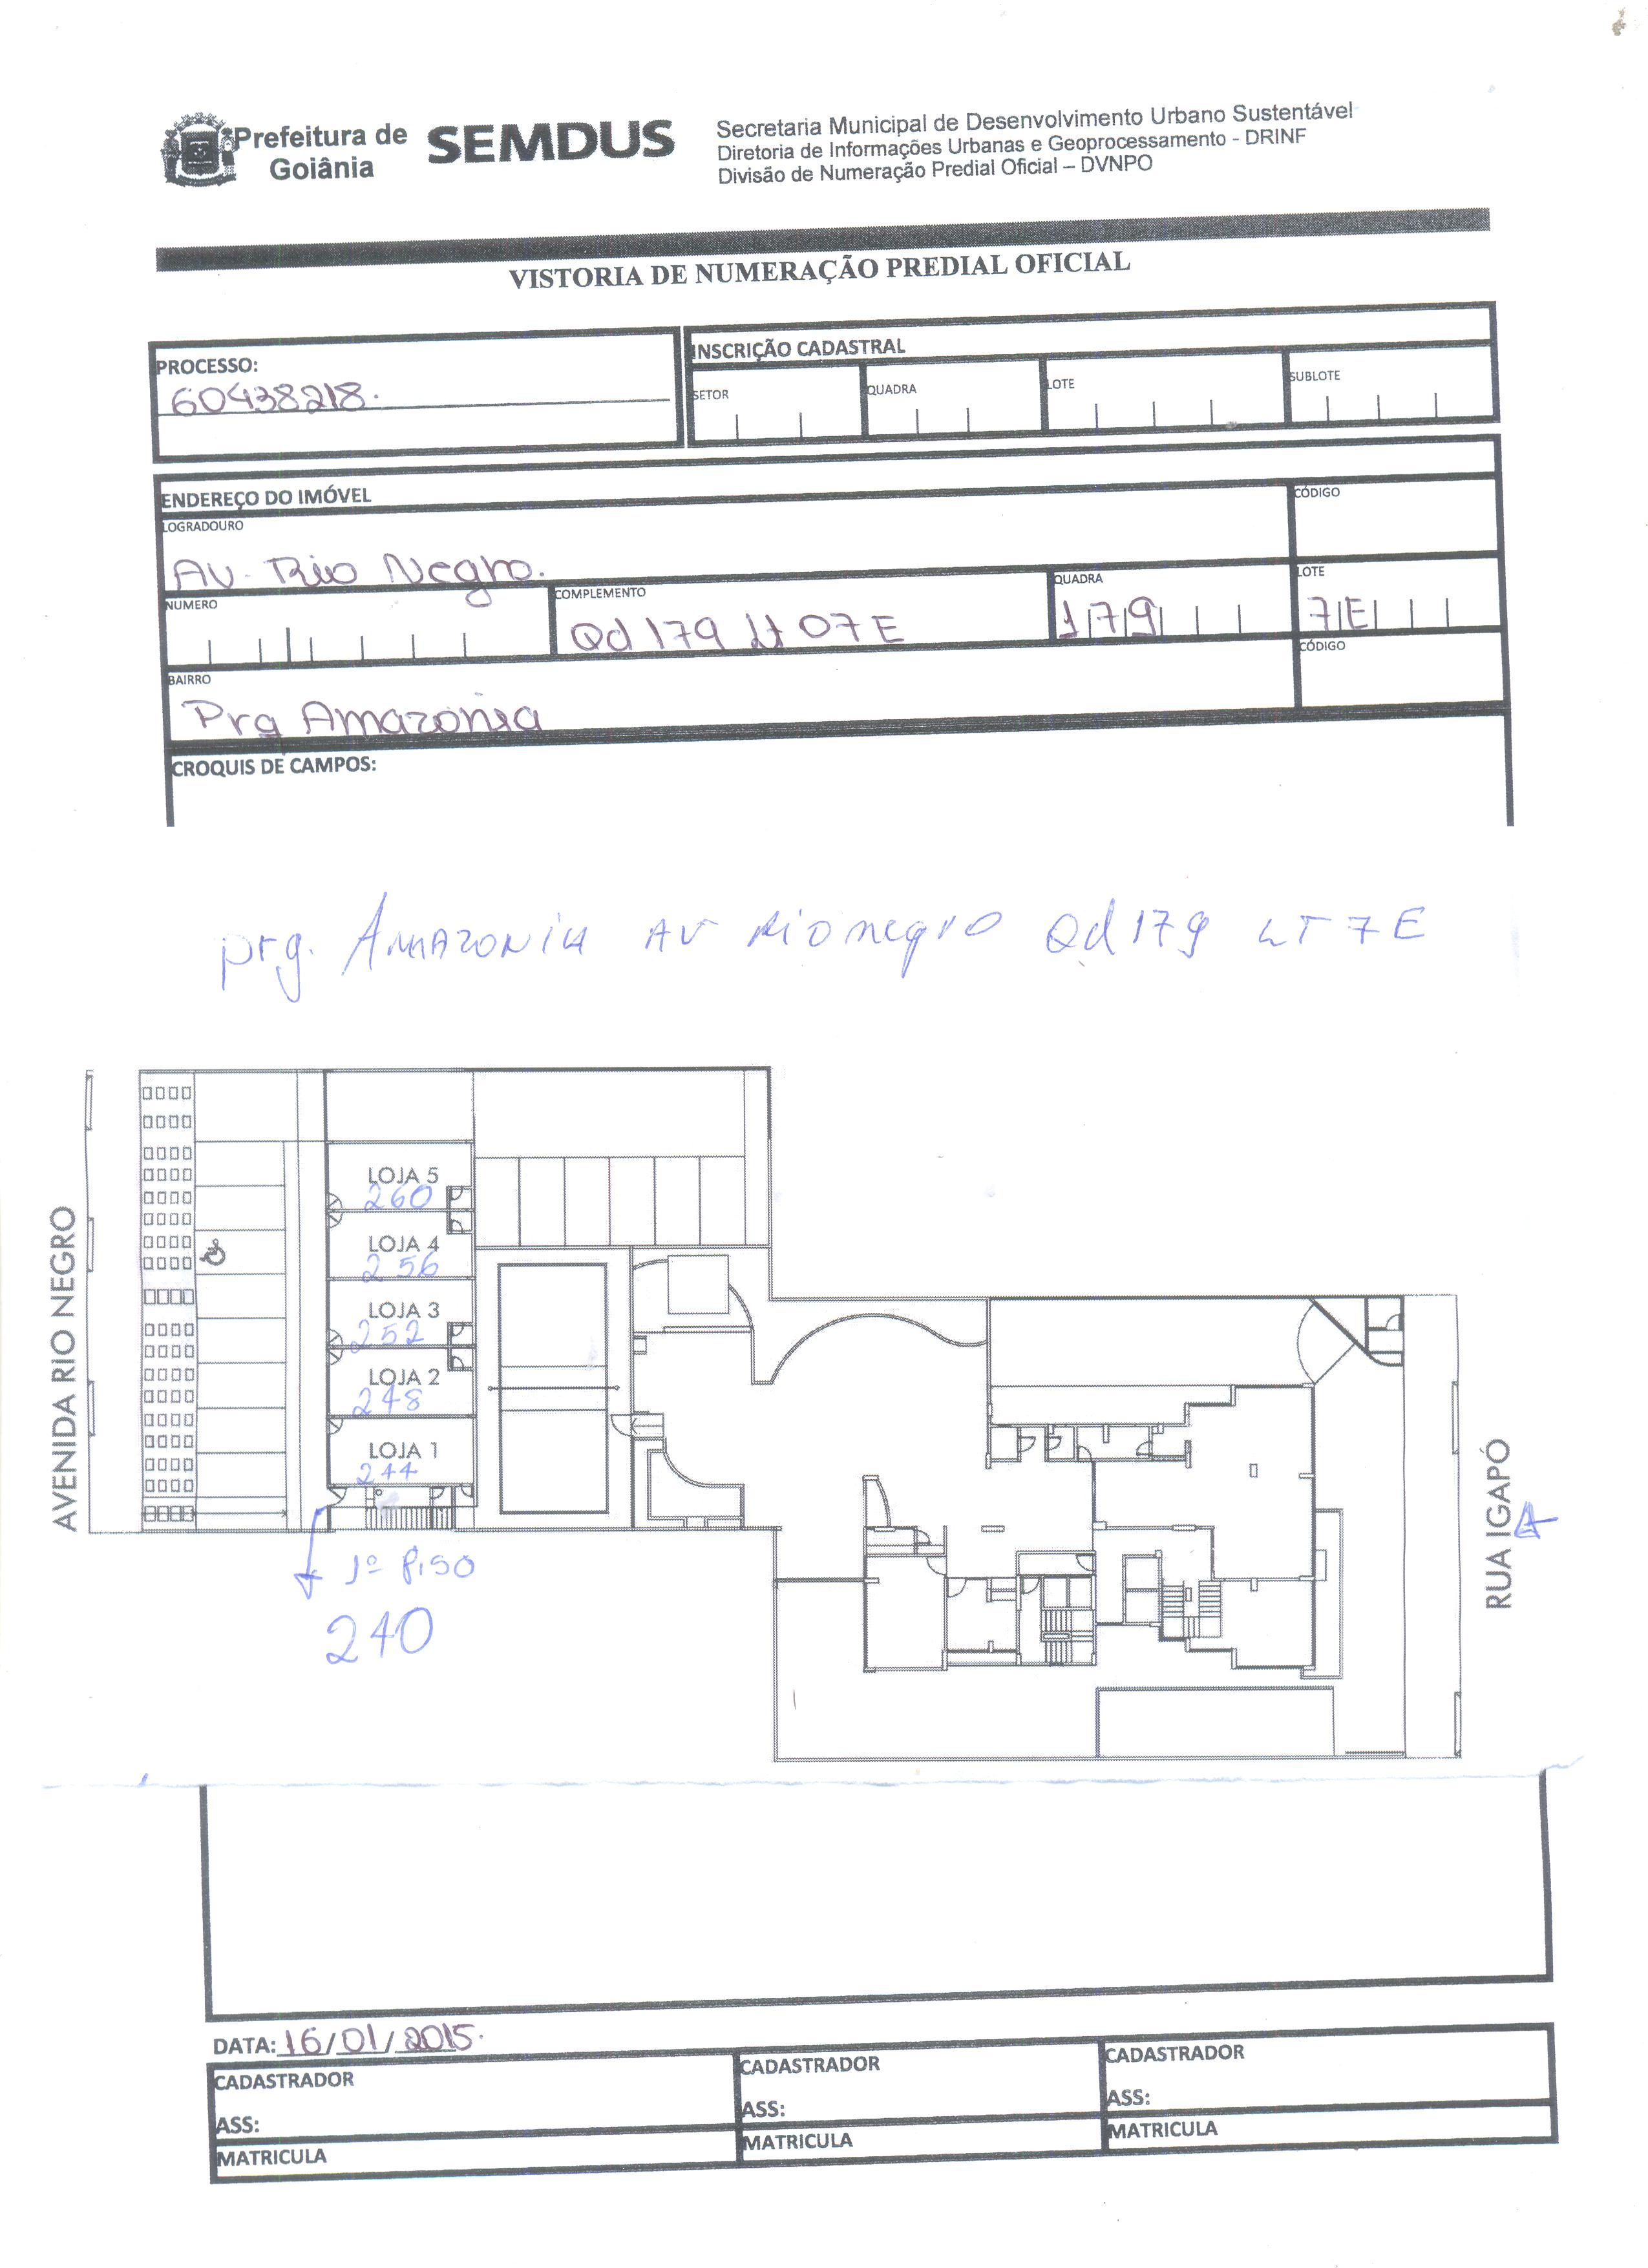 Prefeitura de
Goiânia
SEMDUS
Secretaria Municipal de Desenvolvimento Urbano Sustentável
Diretoria de Informações Urbanas e Geoprocessamento - DRINF
Divisão de Numeração Predial Oficial – DVNPO
VISTORIA DE NUMERAÇÃO PREDIAL OFICIAL
PROCESSO:
60438218.
INSCRIÇÃO CADASTRAL
SETOR
QUADRA
LOTE
SUBLOTE
ENDEREÇO DO IMÓVEL
LOGRADOURO
Av. Rio Negro.
CÓDIGO
NUMERO
COMPLEMENTO
Qd 179 Lt 07E
QUADRA
179
LOTE
7E
BAIRRO
Prq Amazonia
CÓDIGO
CROQUIS DE CAMPOS:
prq. AMAZONIA AV Rio negro Qd 179 LT 7E
AVENIDA RIO NEGRO
LOJA 5
260
LOJA 4
256
LOJA 3
252
LOJA 2
248
LOJA 1
244
1º Piso
240
RUA IGAPÓ
DATA: 16/01/2015.
CADASTRADOR
ASS:
MATRICULA
CADASTRADOR
ASS:
MATRICULA
CADASTRADOR
ASS:
MATRICULA